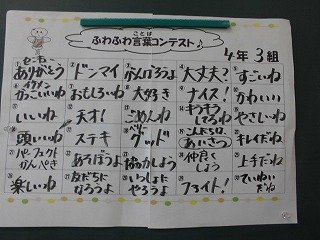 ことば
ふわふわ言葉コンテスト♪
4年3組
ありがとう
ドンマイ
がんばろうよ
大丈夫?
すごいね
かっこいいね
おもしろいね
大好き
ナイス!
かわいい
いいね
天才!
ごめんね
キラキラしてるね
やさしいね
頭いいね
ステキ
グッド
こんにちは
あいさつ
キレイだね
パーフェクト
かんぺき
あそぼうよ
協力しよう
仲良く
しよう
上手だね
楽しいね
友だちに
なろうよ
いっしょに
やろうよ
ファイト!
ていねい
だね